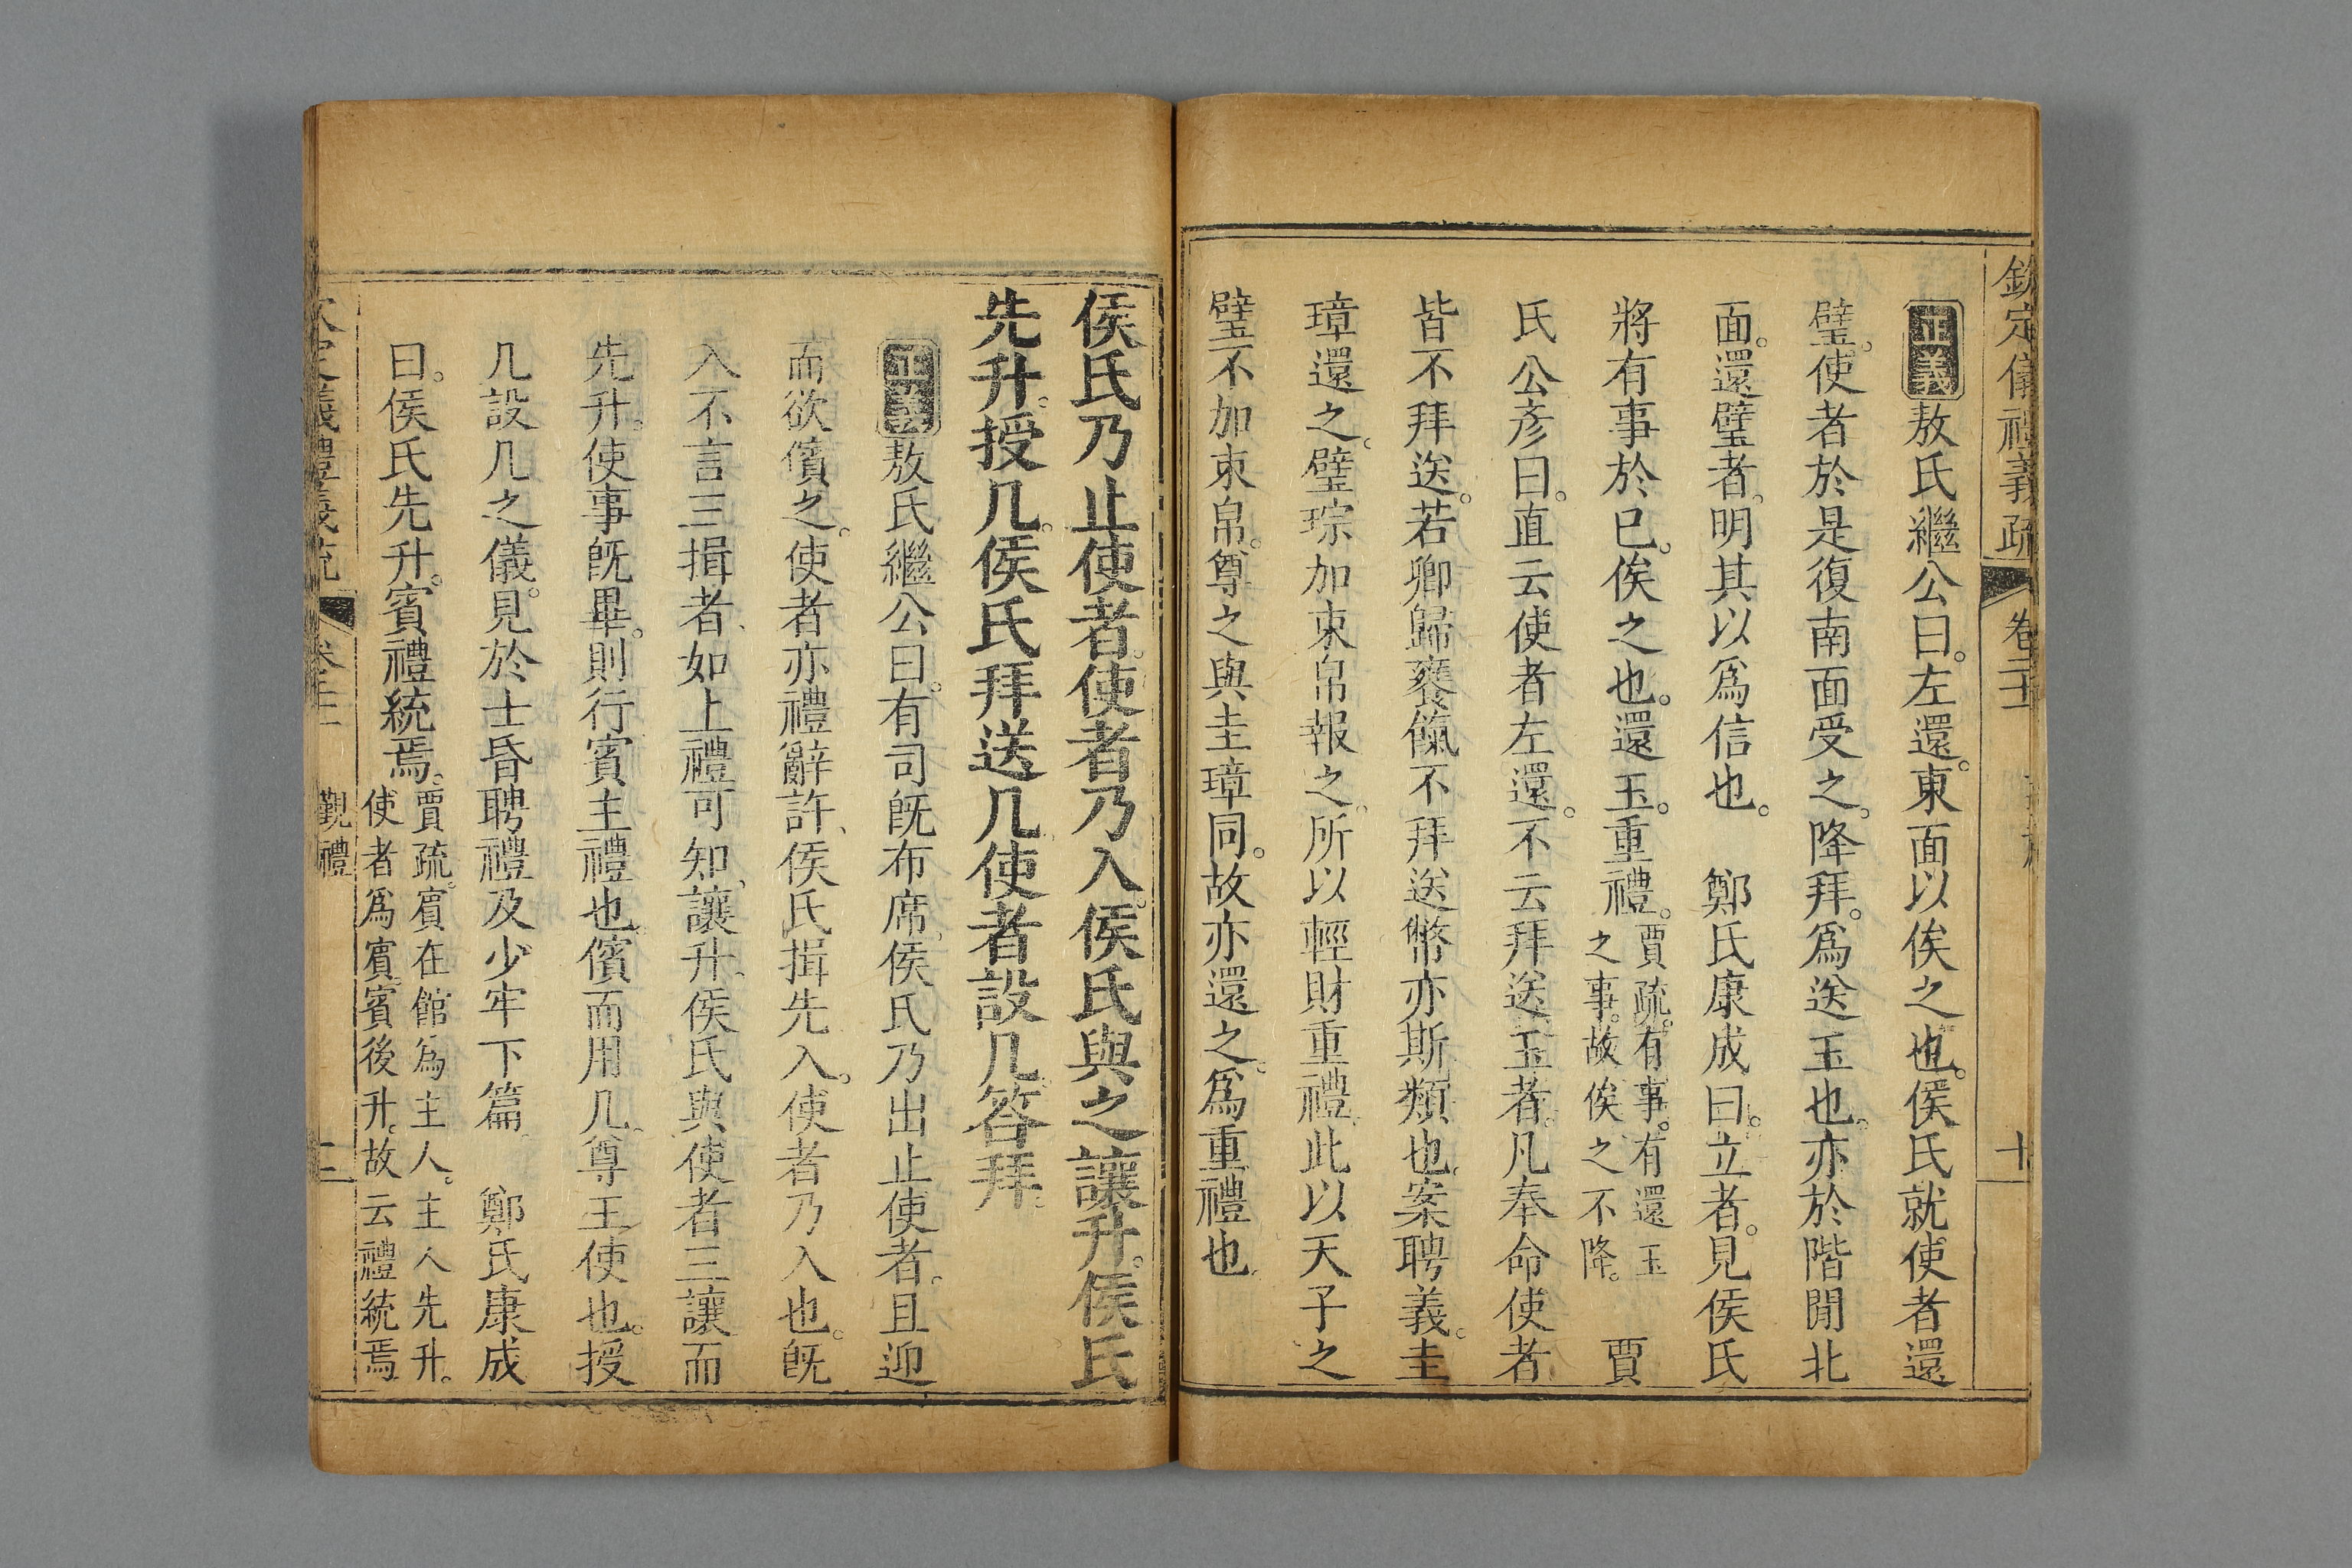 欽定儀禮義疏 卷二十 十
正義敖氏繼公曰左還東面以俟之也侯氏就使者還
璧使者於是復南面受之降拜爲送玉也亦於階閒北
面還璧者明其以爲信也 鄭氏康成曰立者見侯氏
將有事於已俟之也還玉重禮賈疏有事有還玉之事故俟之不降 賈
氏公彥曰直云使者左還不云拜送玉者凡奉命使者
皆不拜送若卿歸饔餼不拜送幣亦斯類也案聘義圭
璋還之璧琮加束帛報之所以輕財重禮此以天子之
璧不加束帛尊之與圭璋同故亦還之爲重禮也
侯氏乃止使者使者乃入侯氏與之讓升侯氏
先升授几侯氏拜送几使者設几答拜
正義敖氏繼公曰有司旣布席侯氏乃出止使者且迎
而欲儐之使者亦禮辭許侯氏揖先入使者乃入也旣
入不言三揖者如上禮可知讓升侯氏與使者三讓而
先升使事旣畢則行賓主禮也儐而用几尊王使也授
几設几之儀見於士昏聘禮及少牢下篇 鄭氏康成
曰侯氏先升賓禮統焉賈疏賓在館爲主人主人先升使者爲賓賓後升故云禮統焉
定儀禮義疏 覲禮